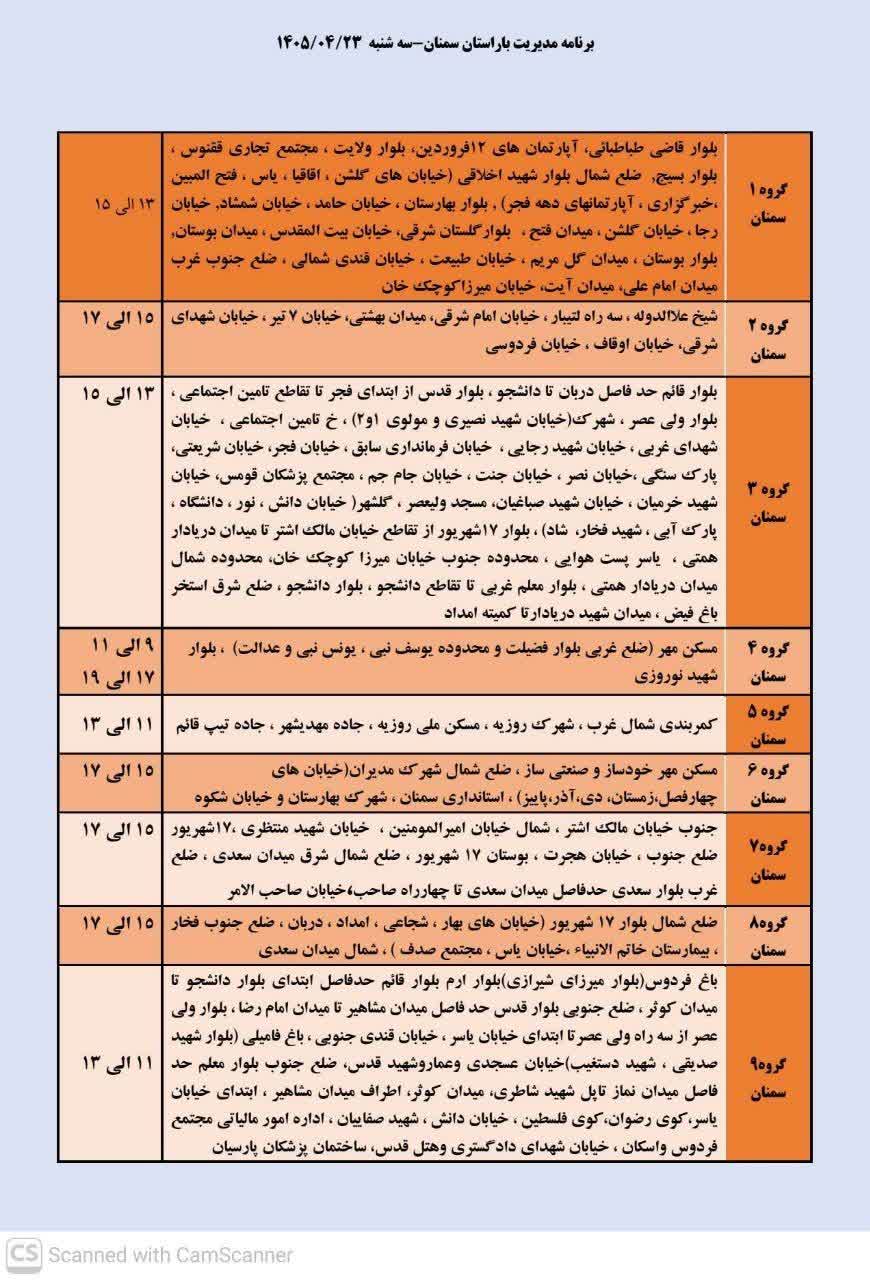 برنامه مدیریت بار استان سمنان-سه شنبه ۱۴۰۵/۰۴/۲۳
گروه ۱
سمنان
بلوار قاضی طباطبائی، آپارتمان های ۱۲فروردین، بلوار ولایت ، مجتمع تجاری ققنوس ،
بلوار بسیج, ضلع شمال بلوار شهید اخلاقی (خیابان های گلشن ، اقاقیا ، یاس ، فتح المبین
،خبرگزاری ، آپارتمانهای دهه فجر) , بلوار بهارستان ، خیابان حامد ، خیابان شمشاد, خیابان
رجا ، خیابان گلشن ، میدان فتح ، بلوارگلستان شرقی، خیابان بیت المقدس ، میدان بوستان,
بلوار بوستان ، میدان گل مریم ، خیابان طبیعت ، خیابان قندی شمالی ، ضلع جنوب غرب
میدان امام علی، میدان آیت، خیابان میرزاکوچک خان
۱۳ الی ۱۵
گروه ۲
سمنان
شیخ علاالدوله ، سه راه لتیبار ، خیابان امام شرقی، میدان بهشتی، خیابان ۷ تیر ، خیابان شهدای
شرقی، خیابان اوقاف ، خیابان فردوسی
۱۵ الی ۱۷
گروه ۳
سمنان
بلوار قائم حد فاصل دربان تا دانشجو ، بلوار قدس از ابتدای فجر تا تقاطع تامین اجتماعی ،
بلوار ولی عصر ، شهرک(خیابان شهید نصیری و مولوی ۱و۲) ، خ تامین اجتماعی ، خیابان
شهدای غربی ، خیابان شهید رجایی ، خیابان فرمانداری سابق ، خیابان فجر، خیابان شریعتی،
پارک سنگی ،خیابان نصر ، خیابان جنت ، خیابان جام جم ، مجتمع پزشکان قومس، خیابان
شهید خرمیان ، خیابان شهید صباغیان، مسجد ولیعصر ، گلشهر( خیابان دانش ، نور ، دانشگاه ،
پارک آبی ، شهید فخار، شاد) ، بلوار ۱۷شهریور از تقاطع خیابان مالک اشتر تا میدان دریادار
همتی ، یاسر پست هوایی ، محدوده جنوب خیابان میرزا کوچک خان، محدوده شمال
میدان دریادار همتی ، بلوار معلم غربی تا تقاطع دانشجو ، بلوار دانشجو ، ضلع شرق استخر
باغ فیض ، میدان شهید دریادارتا کمیته امداد
۱۳ الی ۱۵
گروه ۴
سمنان
مسکن مهر (ضلع غربی بلوار فضیلت و محدوده یوسف نبی ، یونس نبی و عدالت) ، بلوار
شهید نوروزی
۹ الی ۱۱
۱۷ الی ۱۹
گروه ۵
سمنان
کمربندی شمال غرب ، شهرک روزیه ، مسکن ملی روزیه ، جاده مهدیشهر ، جاده تیپ قائم
۱۱ الی ۱۳
گروه ۶
سمنان
مسکن مهر خودساز و صنعتی ساز ، ضلع شمال شهرک مدیران(خیابان های
چهارفصل،زمستان، دی،آذر،پاییز) ، استانداری سمنان ، شهرک بهارستان و خیابان شکوه
۱۵ الی ۱۷
گروه۷
سمنان
جنوب خیابان مالک اشتر ، شمال خیابان امیرالمومنین ، خیابان شهید منتظری ،۱۷شهریور
ضلع جنوب ، خیابان هجرت ، بوستان ۱۷ شهریور ، ضلع شمال شرق میدان سعدی ، ضلع
غرب بلوار سعدی حدفاصل میدان سعدی تا چهارراه صاحب،خیابان صاحب الامر
۱۵ الی ۱۷
گروه۸
سمنان
ضلع شمال بلوار ۱۷ شهریور (خیابان های بهار ، شجاعی ، امداد ، دربان ، ضلع جنوب فخار
، بیمارستان خاتم الانبیاء ،خیابان یاس ، مجتمع صدف ) ، شمال میدان سعدی
۱۵ الی ۱۷
گروه۹
سمنان
باغ فردوس(بلوار میرزای شیرازی)بلوار ارم بلوار قائم حدفاصل ابتدای بلوار دانشجو تا
میدان کوثر ، ضلع جنوبی بلوار قدس حد فاصل میدان مشاهیر تا میدان امام رضا ، بلوار ولی
عصر از سه راه ولی عصرتا ابتدای خیابان یاسر ، خیابان قندی جنوبی ، باغ فامیلی (بلوار شهید
صدیقی ، شهید دستغیب)خیابان عسجدی وعماروشهید قدس، ضلع جنوب بلوار معلم حد
فاصل میدان نماز تاپل شهید شاطری، میدان کوثر، اطراف میدان مشاهیر ، ابتدای خیابان
یاسر،کوی رضوان،کوی فلسطین ، خیابان دانش ، شهید صفاییان ، اداره امور مالیاتی مجتمع
فردوس واسکان ، خیابان شهدای دادگستری وهتل قدس، ساختمان پزشکان پارسیان
۱۱ الی ۱۳
CS Scanned with CamScanner